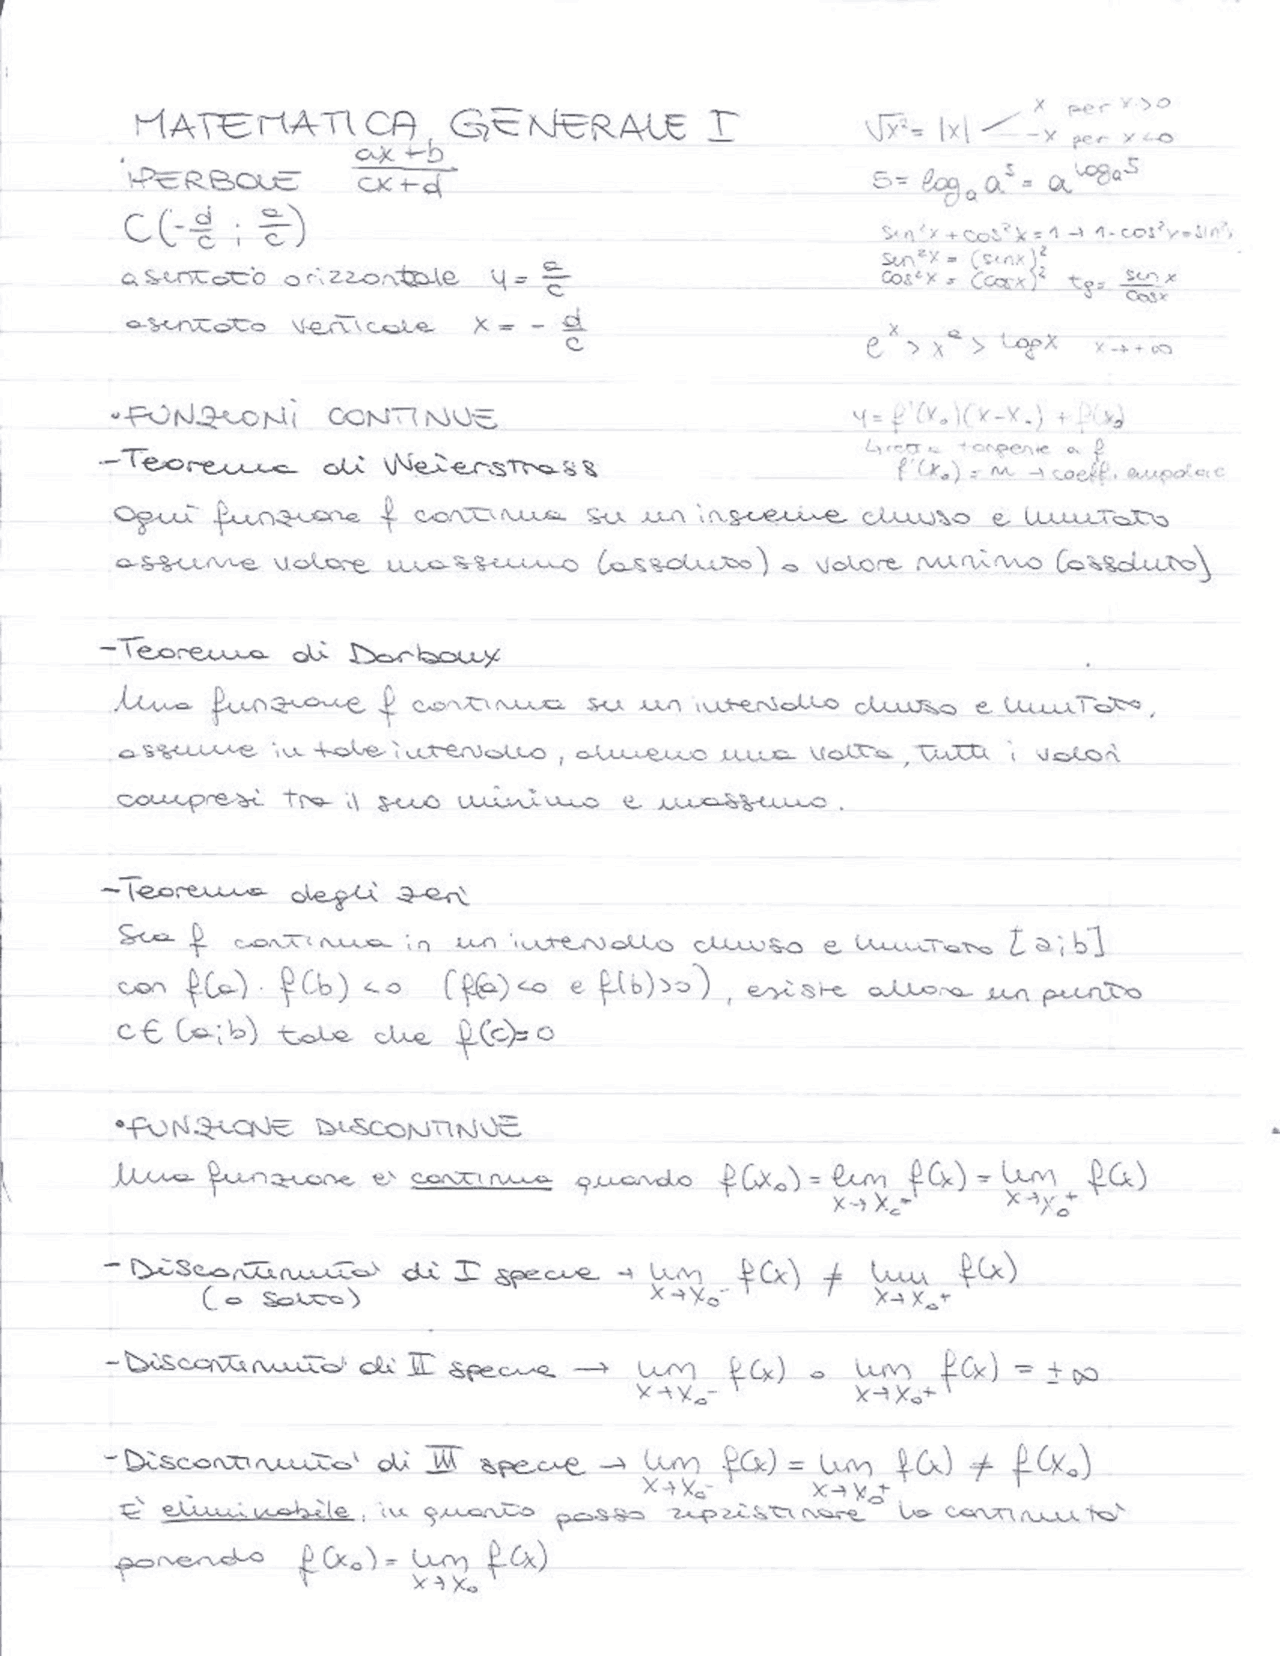 MATEMATICA GENERALE I
IPERBOLE (ax+b)/(cx+d)
C(-d/c ; a/c)
asintoto orizzontale y = a/c
asintoto verticale x = - d/c
√x² = |x| x per x>0
-x per x<0
5 = logₐ a⁵ = a^(logₐ5)
sen²x + cos²x = 1 → 1-cos²x = sin²x
sen²x = (senx)²
cos²x = (cosx)² tg = senx/cosx
eˣ > xᵃ > logx x→+∞
y = f'(x₀)(x-x₀) + f(x₀)
↳ retta tangente a f
f'(x₀) = m → coeff. angolare
•FUNZIONI CONTINUE
-Teorema di Weierstrass
Ogni funzione f continua su un insieme chiuso e limitato
assume valore massimo (assoluto) o valore minimo (assoluto)
-Teorema di Darboux
Una funzione f continua su un intervallo chiuso e limitato,
assume in tale intervallo, almeno una volta, tutti i valori
compresi tra il suo minimo e massimo.
-Teorema degli zeri
Sia f continua in un intervallo chiuso e limitato [a;b]
con f(a) · f(b) <0 (f(a)<0 e f(b)>0), esiste allora un punto
c∈(a;b) tale che f(c)=0
•FUNZIONE DISCONTINUE
Una funzione e' continua quando f(x₀) = lim x→x₀⁻ f(x) = lim x→x₀⁺ f(x)
-Discontinuità di I specie → lim x→x₀⁻ f(x) ≠ lim x→x₀⁺ f(x)
(o salto)
-Discontinuità di II specie → lim x→x₀⁻ f(x) o lim x→x₀⁺ f(x) = ±∞
-Discontinuità di III specie → lim x→x₀⁻ f(x) = lim x→x₀⁺ f(x) ≠ f(x₀)
E' eliminabile, in quanto posso ripristinare la continuità
ponendo f(x₀) = lim x→x₀ f(x)